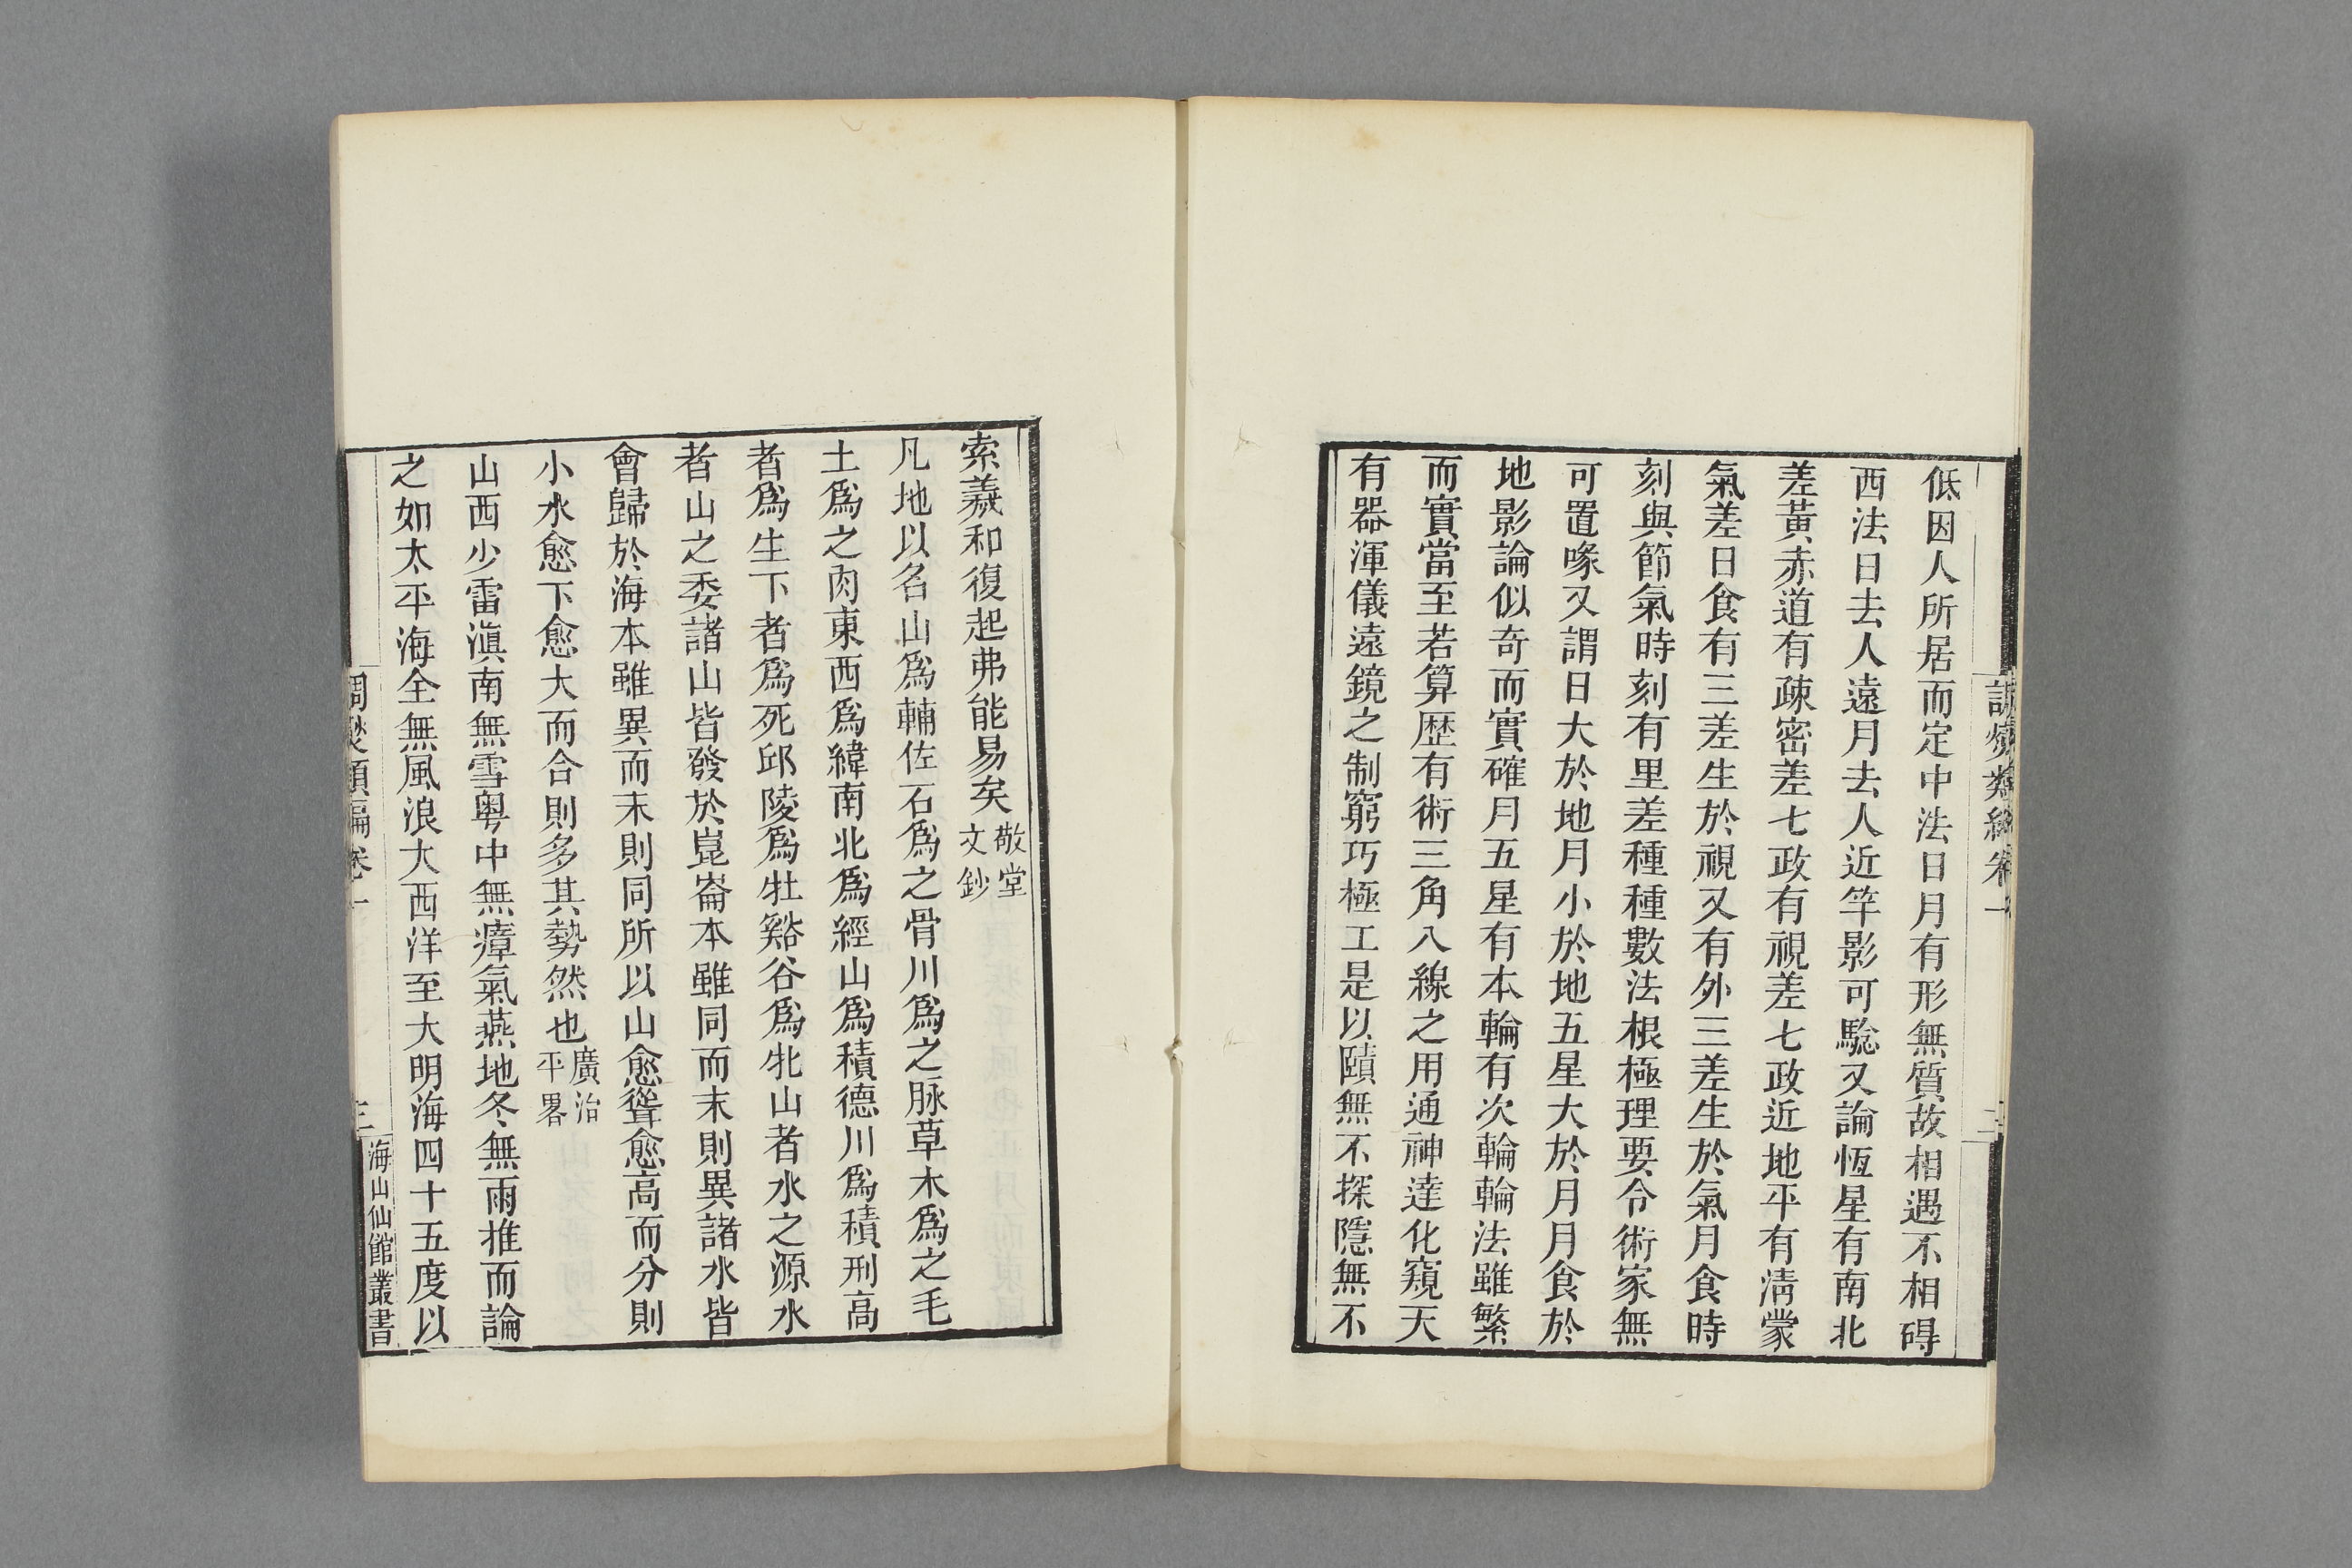 低因人所居而定中法日月有形無質故相遇不相碍
西法日去人遠月去人近竿影可騐又論恆星有南北
差黃赤道有疎密差七政有視差七政近地平有淸蒙
氣差日食有三差生於視又有外三差生於氣月食時
刻與節氣時刻有里差種種數法根極理要令術家無
可置喙又謂日大於地月小於地五星大於月月食於
地影論似奇而實確月五星有本輪有次輪輪法雖繁
而實當至若算歴有術三角八線之用通神達化窺天
有器渾儀遠鏡之制窮巧極工是以賾無不探隱無不
索羲和復起弗能易矣敬堂文鈔
凡地以名山爲輔佐石爲之骨川爲之脉草木爲之毛
土爲之肉東西爲緯南北爲經山爲積德川爲積刑高
者爲生下者爲死邱陵爲牡谿谷爲牝山者水之源水
者山之委諸山皆發於崑崙本雖同而末則異諸水皆
會歸於海本雖異而末則同所以山愈聳愈高而分則
小水愈下愈大而合則多其勢然也廣治平畧
山西少雷滇南無雪粤中無瘴氣燕地冬無雨推而論
之如太平海全無風浪大西洋至大明海四十五度以
卷一
三
海山仙館叢書